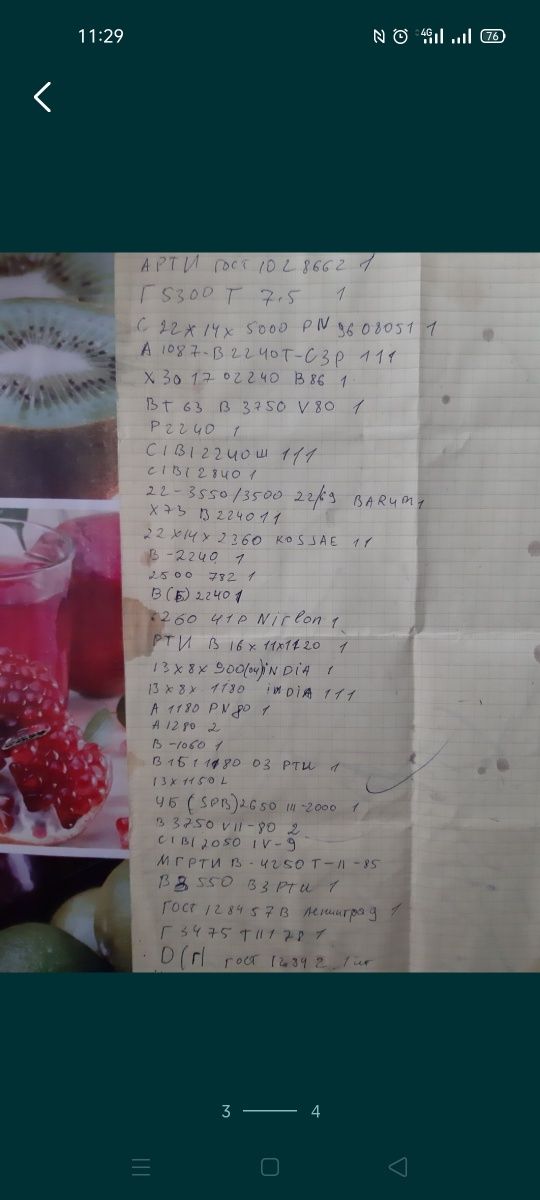 11:29
4G
76
АРТИ ГОСТ 1028662 1
Г 5300 Т 7.5 1
С 22х14х 5000 PN 9608051 1
А 1087-В2240Т-С3Р 111
Х 30 17 02240 В 86 1
ВТ 63 В 3750 V80 1
Р2240 1
С(В)2240Ш 111
С(В)2840 1
22-3550/3500 22/69 BARUM 1
Х73 В 2240 11
22х14х2360 KOSSAE 11
В-2240 1
2500 782 1
В(Б)2240 1
2260 41Р Nirlon 1
РТИ В 16х11х1120 1
13х8х 900(04) iNDiA 1
13х8х 1180 iNDiA 111
А 1180 PN80 1
А1280 2
В-1060 1
1180 ОЗ РТИ 1
13х1150L
ЧБ (SPB)2650 III-2000 1
В 3750 VII-80 2
С(В)2050 IV-9
МГРТИ В-4250 Т-II-85
В 3550 ВЗ РТИ 1
ГОСТ 128457В Ленинград 1
Г 3475 Т II 78 1
D(Г) ГОСТ 1шт
3 4